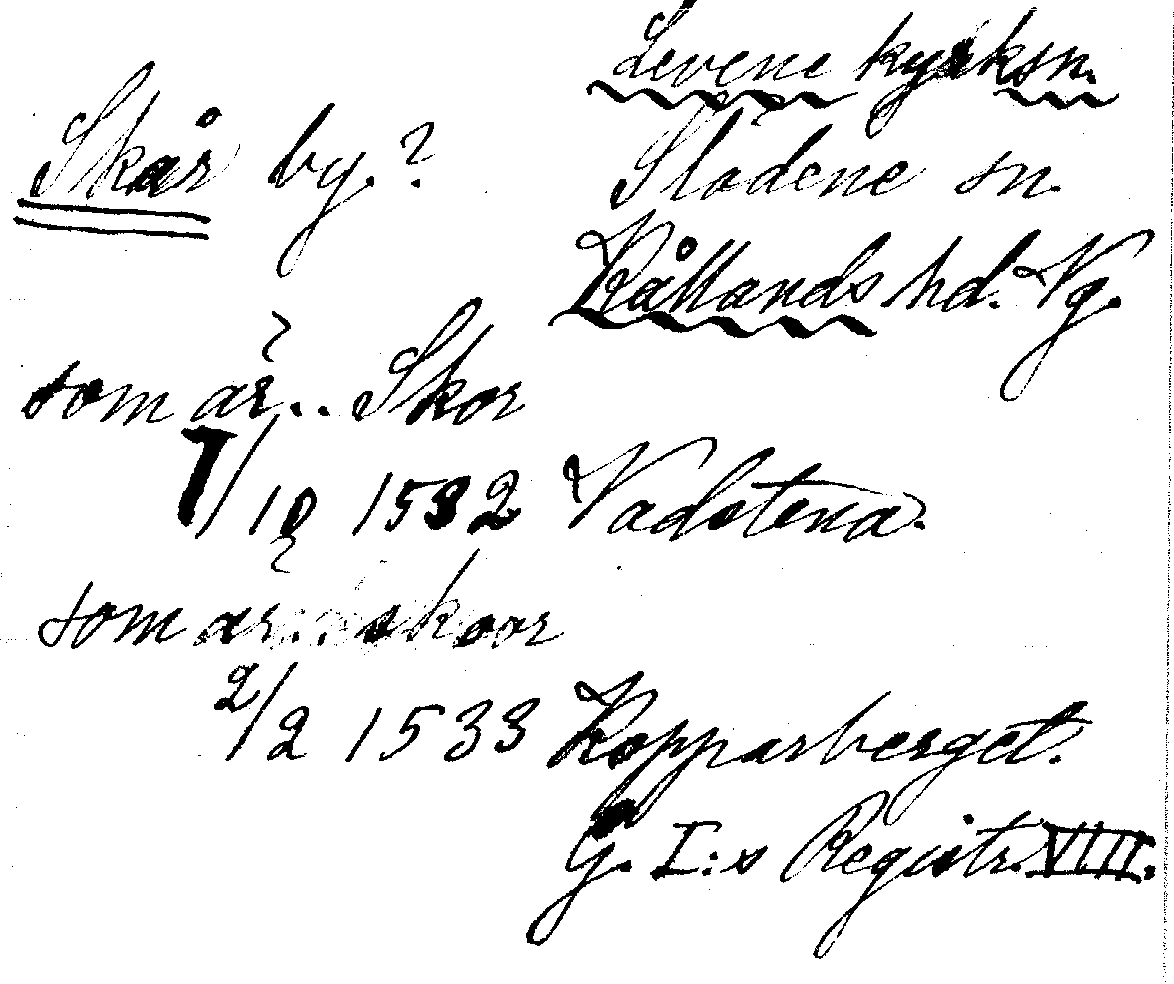 Levene kyrksn.
Skår by.?
Slädene sn.
Kållands hd. Vg.
som är... Skor
7/10 1532 Vadstena.
som är... skoor
2/2 1533 Kopparberget.
G. I:s Registr. VIII.